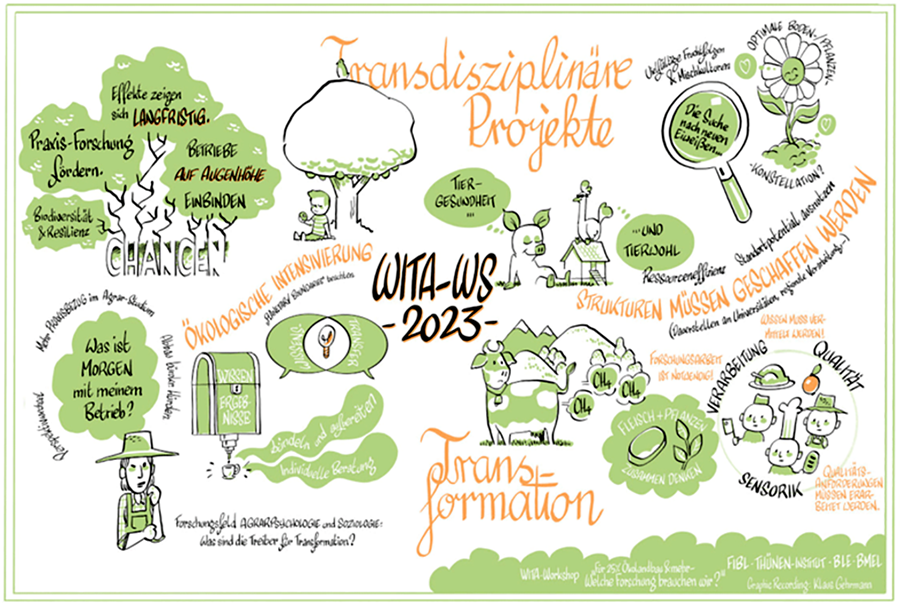 Transdisziplinäre
Projekte
Effekte zeigen
sich LANGFRISTIG.
Praxis-Forschung
fördern.
BETRIEBE
AUF AUGENHÖHE
EINBINDEN
Biodiversität
& Resilienz
CHANCEN
Vielfältige Fruchtfolgen
& Mischkulturen
Die Suche
nach neuen
Eiweißen...
OPTIMALE BODEN-/PFLANZEN
-KONSTELLATION?
TIER-
GESUNDHEIT
...
...UND
TIERWOHL
Ressourceneffizienz
Standortpotential ausnutzen
STRUKTUREN MÜSSEN GESCHAFFEN WERDEN
(Dauerstellen an Universitäten, regionale Verarbeitung...)
ÖKOLOGISCHE INTENSIVIERUNG
"PLANETARY BOUNDARIES" beachten
WITA-WS
-2023-
Mehr PRAXISBEZUG im Agrar-Studium
Was ist
MORGEN
mit meinem
Betrieb?
WISSEN
ERGEB
NISSE
WISSENS
TRANSFER
bündeln und aufbereiten
Individuelle Beratung
Forschungsfeld AGRARPSYCHOLOGIE und SOZIOLOGIE:
Was sind die Treiber für Transformation?
CH4
CH4
CH4
CH4
Trans-
formation
FORSCHUNGSARBEIT
IST NOTWENDIG!
WISSEN MUSS VER-
MITTELT WERDEN!
FLEISCH + PFLANZEN
ZUSAMMEN DENKEN
VERARBEITUNG
QUALITÄT
SENSORIK
QUALITÄTS-
ANFORDERUNGEN
MÜSSEN ERAR-
BEITET WERDEN.
WITA-Workshop "Für 25% Ökolandbau & mehr-
Welche Forschung brauchen wir?"
FIBL · THÜNEN-INSTITUT · BLE · BMEL
Graphic Recording: Klaus Gehrmann